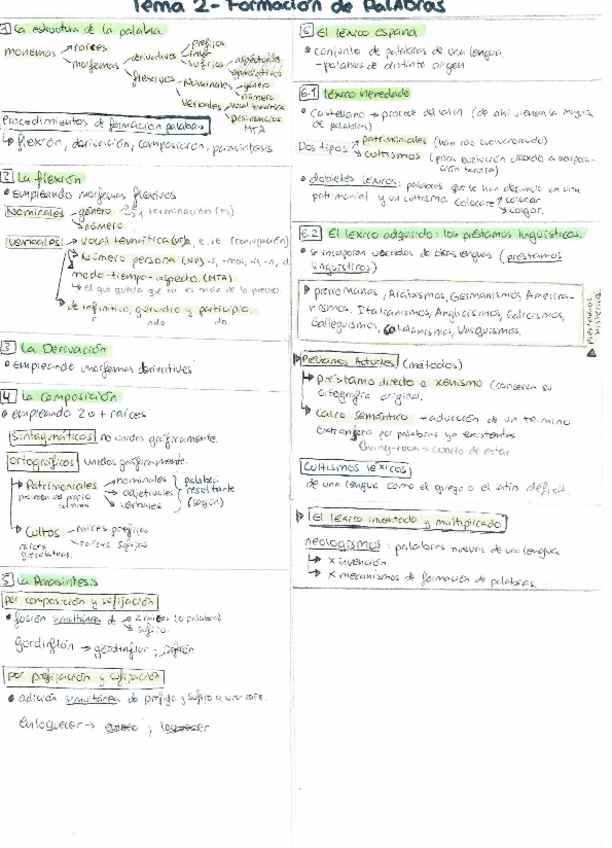 Tema 2- Formación de Palabras
1 La estructura de la palabra.
monemas
raíces
morfemas
derivativos
prefijos
sufijos
flexivos
Nominales
género
número
Verbales
vocal temática
desinencias
MTA
Procedimientos de formación palabras
flexión, derivación, composición, parasíntesis
2 La flexión
empleando morfemas flexivos
Nominales
género
terminación
número
Verbales
vocal temática (VT) a, e, i (conjugación)
número persona (NP)
modo-tiempo-aspecto. (MTA)
de infinitivo, gerundio y participio.
r ndo do
3 La Derivación
empleando morfemas derivativos
4 La composición
empleando 2 o + raíces
Sintagmáticos no unidas gráficamente.
Ortográficos unidas gráficamente.
Patrimoniales
nominales
adjetivales
verbales
palabra
resultante
(según)
Cultos
raíces prefijas
raíces sufijas
raíces
grecolatinas.
5 La Parasíntesis
por composición y sufijación
fusión simultánea de
2 raíces (o palabras)
sufijo.
gordinflón → gordinflar ; inflón
por prefijación y sufijación
adición simultánea de prefijo y sufijo a una raíz.
Enloquecer →
; loquecer
6 El léxico español
conjunto de palabras de una lengua.
- palabras de distinto origen
6.1 léxico heredado
Castellano → procede del latín (de ahí vienen la mayoría
de palabras)
Dos tipos
patrimoniales (han ido evolucionando)
cultismos (poca evolución debido a incorpora-
ción tardía)
dobletes léxicos: palabras que se han derivado en una
patrimonial y un cultismo
colocare
colocar
colgar.
6.2 El léxico adquirido: los préstamos lingüísticos.
se incorporan vocablos de otras lenguas (préstamos
lingüísticos)
prerromanos, Arabismos, Germanismos, America-
nismos, Italianismos, Anglicismos, Galicismos,
Galleguismos, Catalanismos, Vasquismos.
préstamos
históricos
Préstamos Actuales (métodos)
préstamo directo o xenismo (conserva su
ortografía original.
Calco semántico → traducción de un término
extranjero por palabras ya existentes
living-room = cuarto de estar
Cultismos léxicos
de una lengua como el griego o el latín
El léxico inventado y multiplicado
neologismos: palabras nuevas de una lengua
x invención
x mecanismos de formación de palabras.